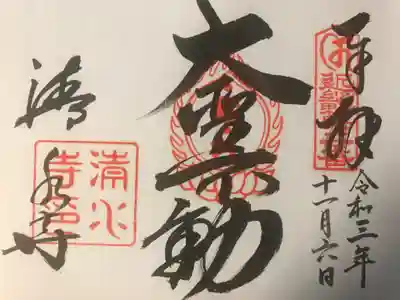 奉拝
令和三年
十一月六日
大聖不動
清水寺
清水
寺印